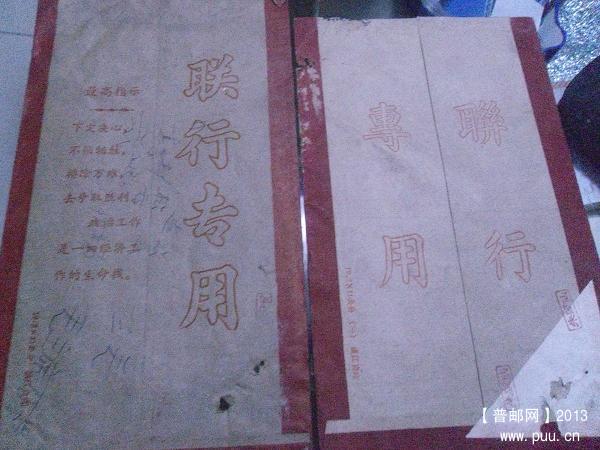 联行专用
最高指示
下定决心，
不怕牺牲，
排除万难，
去争取胜利。
政治工作
是一切经济工
作的生命线。
聯行
專用
【普邮网】2013
www.puu.cn